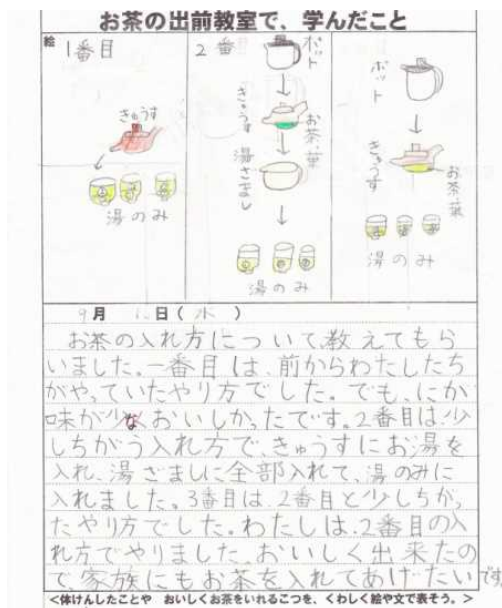 お茶の出前教室で、学んだこと
絵
1番目
きゅうす
湯のみ
2番
ポット
きゅうす
お茶葉
湯さまし
湯のみ
ポット
きゅうす
お茶葉
湯のみ
9月 日(水)
お茶の入れ方について、教えてもら
いました。一番目は、前からわたしたち
がやっていたやり方でした。でも、にが
味が少なくおいしかったです。2番目は、少
しちがう入れ方で、きゅうすにお湯を
入れ、湯ざましに全部入れて、湯のみに
入れました。3番目は、2番目と少しちがっ
たやり方でした。わたしは、2番目の入
れ方でやりました。おいしく出来たの
で、家族にもお茶を入れてあげたいです
<体けんしたことや おいしくお茶をいれるこつを、くわしく絵や文で表そう。>